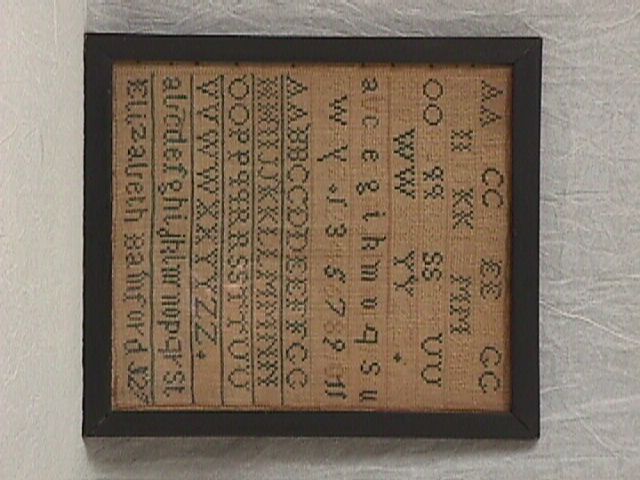 AA CC EE GG
II KK MM
OO qq SS UU
WW YY
a c e g i k m o q s u
w y 1 3 5 6 7 8 9 11
AABBCCDDEEFFGG
HHIIJJKKLLMMNN
OOPPqqRRSSTTUU
VVWWXXYYZZ
abcdefghijklmnopqrst
Elizabeth Bamford